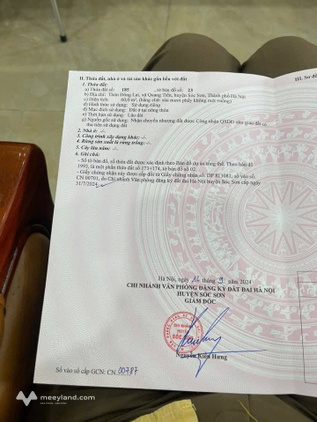 II. Thửa đất, nhà ở và tài sản khác gắn liền với đất
1. Thửa đất:
a) Thửa đất số: 185 tờ bản đồ số: 25
b) Địa chỉ: Thôn Đông Lai, xã Quang Tiến, huyện Sóc Sơn, Thành phố Hà Nội
c) Diện tích: 60,0 m², (bằng chữ: sáu mươi phẩy không mét vuông)
d) Hình thức sử dụng: Sử dụng riêng
đ) Mục đích sử dụng: Đất ở tại nông thôn
e) Thời hạn sử dụng: Lâu dài
g) Nguồn gốc sử dụng: Nhận chuyển nhượng đất được Công nhận QSDĐ như giao đất có
thu tiền sử dụng đất
2. Nhà ở: -/-
3. Công trình xây dựng khác: -/-
4. Rừng sản xuất là rừng trồng: -/-
5. Cây lâu năm: -/-
6. Ghi chú:
- Số tờ bản đồ, số thửa đất được xác định theo Bản đồ dự án tổng thể. Theo bản đồ
1993, là một phần thửa đất số 173+174, tờ bản đồ số 02.
- Giấy chứng nhận này được cấp đổi từ Giấy chứng nhận số: số vào sổ
CN 00701, do Chi nhánh Văn phòng đăng ký đất đai Hà Nội huyện Sóc Sơn cấp ngày
31/7/2024
Hà Nội, ngày 16 tháng 9 năm 2024
CHI NHÁNH VĂN PHÒNG ĐĂNG KÝ ĐẤT ĐAI HÀ NỘI
HUYỆN SÓC SƠN
GIÁM ĐỐC
Nguyễn Kiên Hưng
Số vào sổ cấp GCN: CN 00787
III. Sơ đồ
meeyland.com